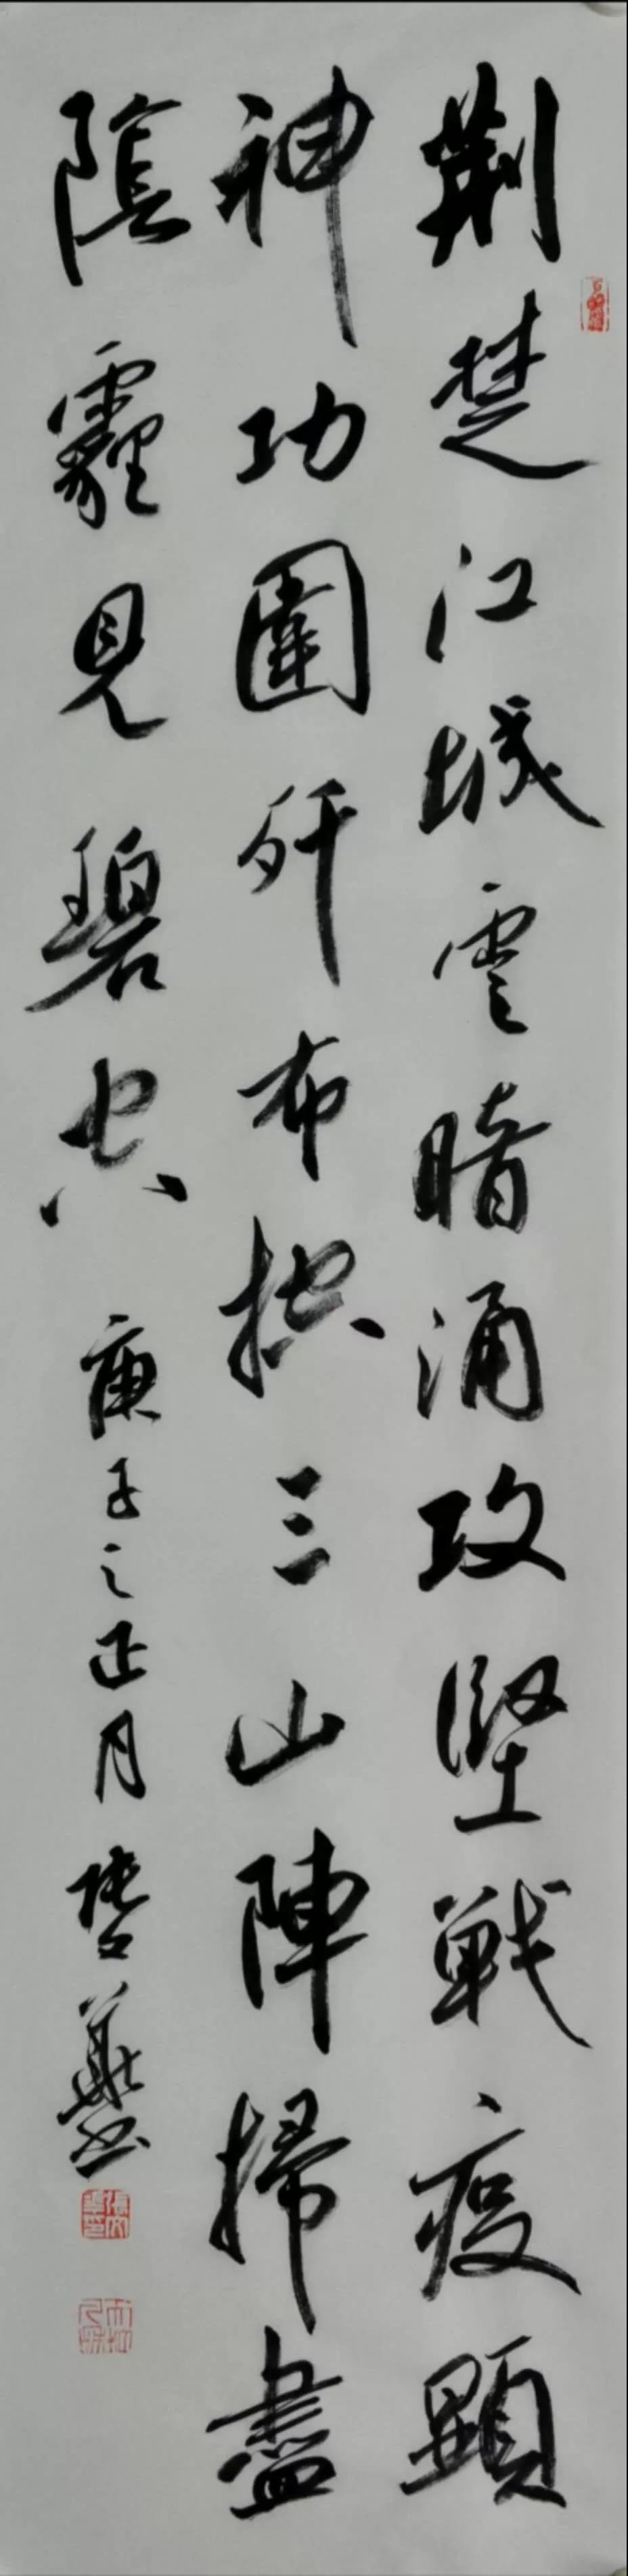 荆楚江城雲暗涌攻堅戰疫顯
神功圍歼布控三山陣掃盡
陰霾見碧空 庚子之正月